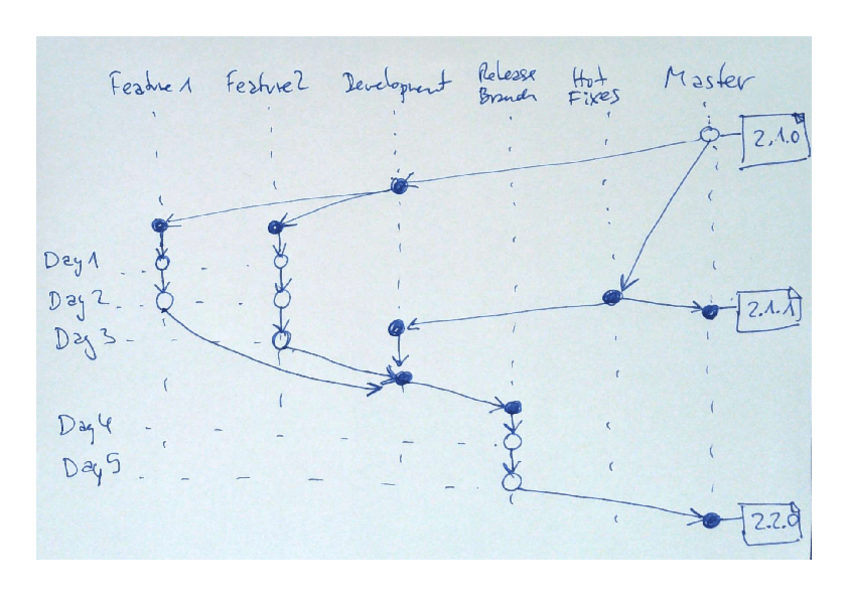 Feature 1 Feature 2 Development Release Branch Hot Fixes Master
2.1.0
Day 1
Day 2
2.1.1
Day 3
Day 4
Day 5
2.2.0